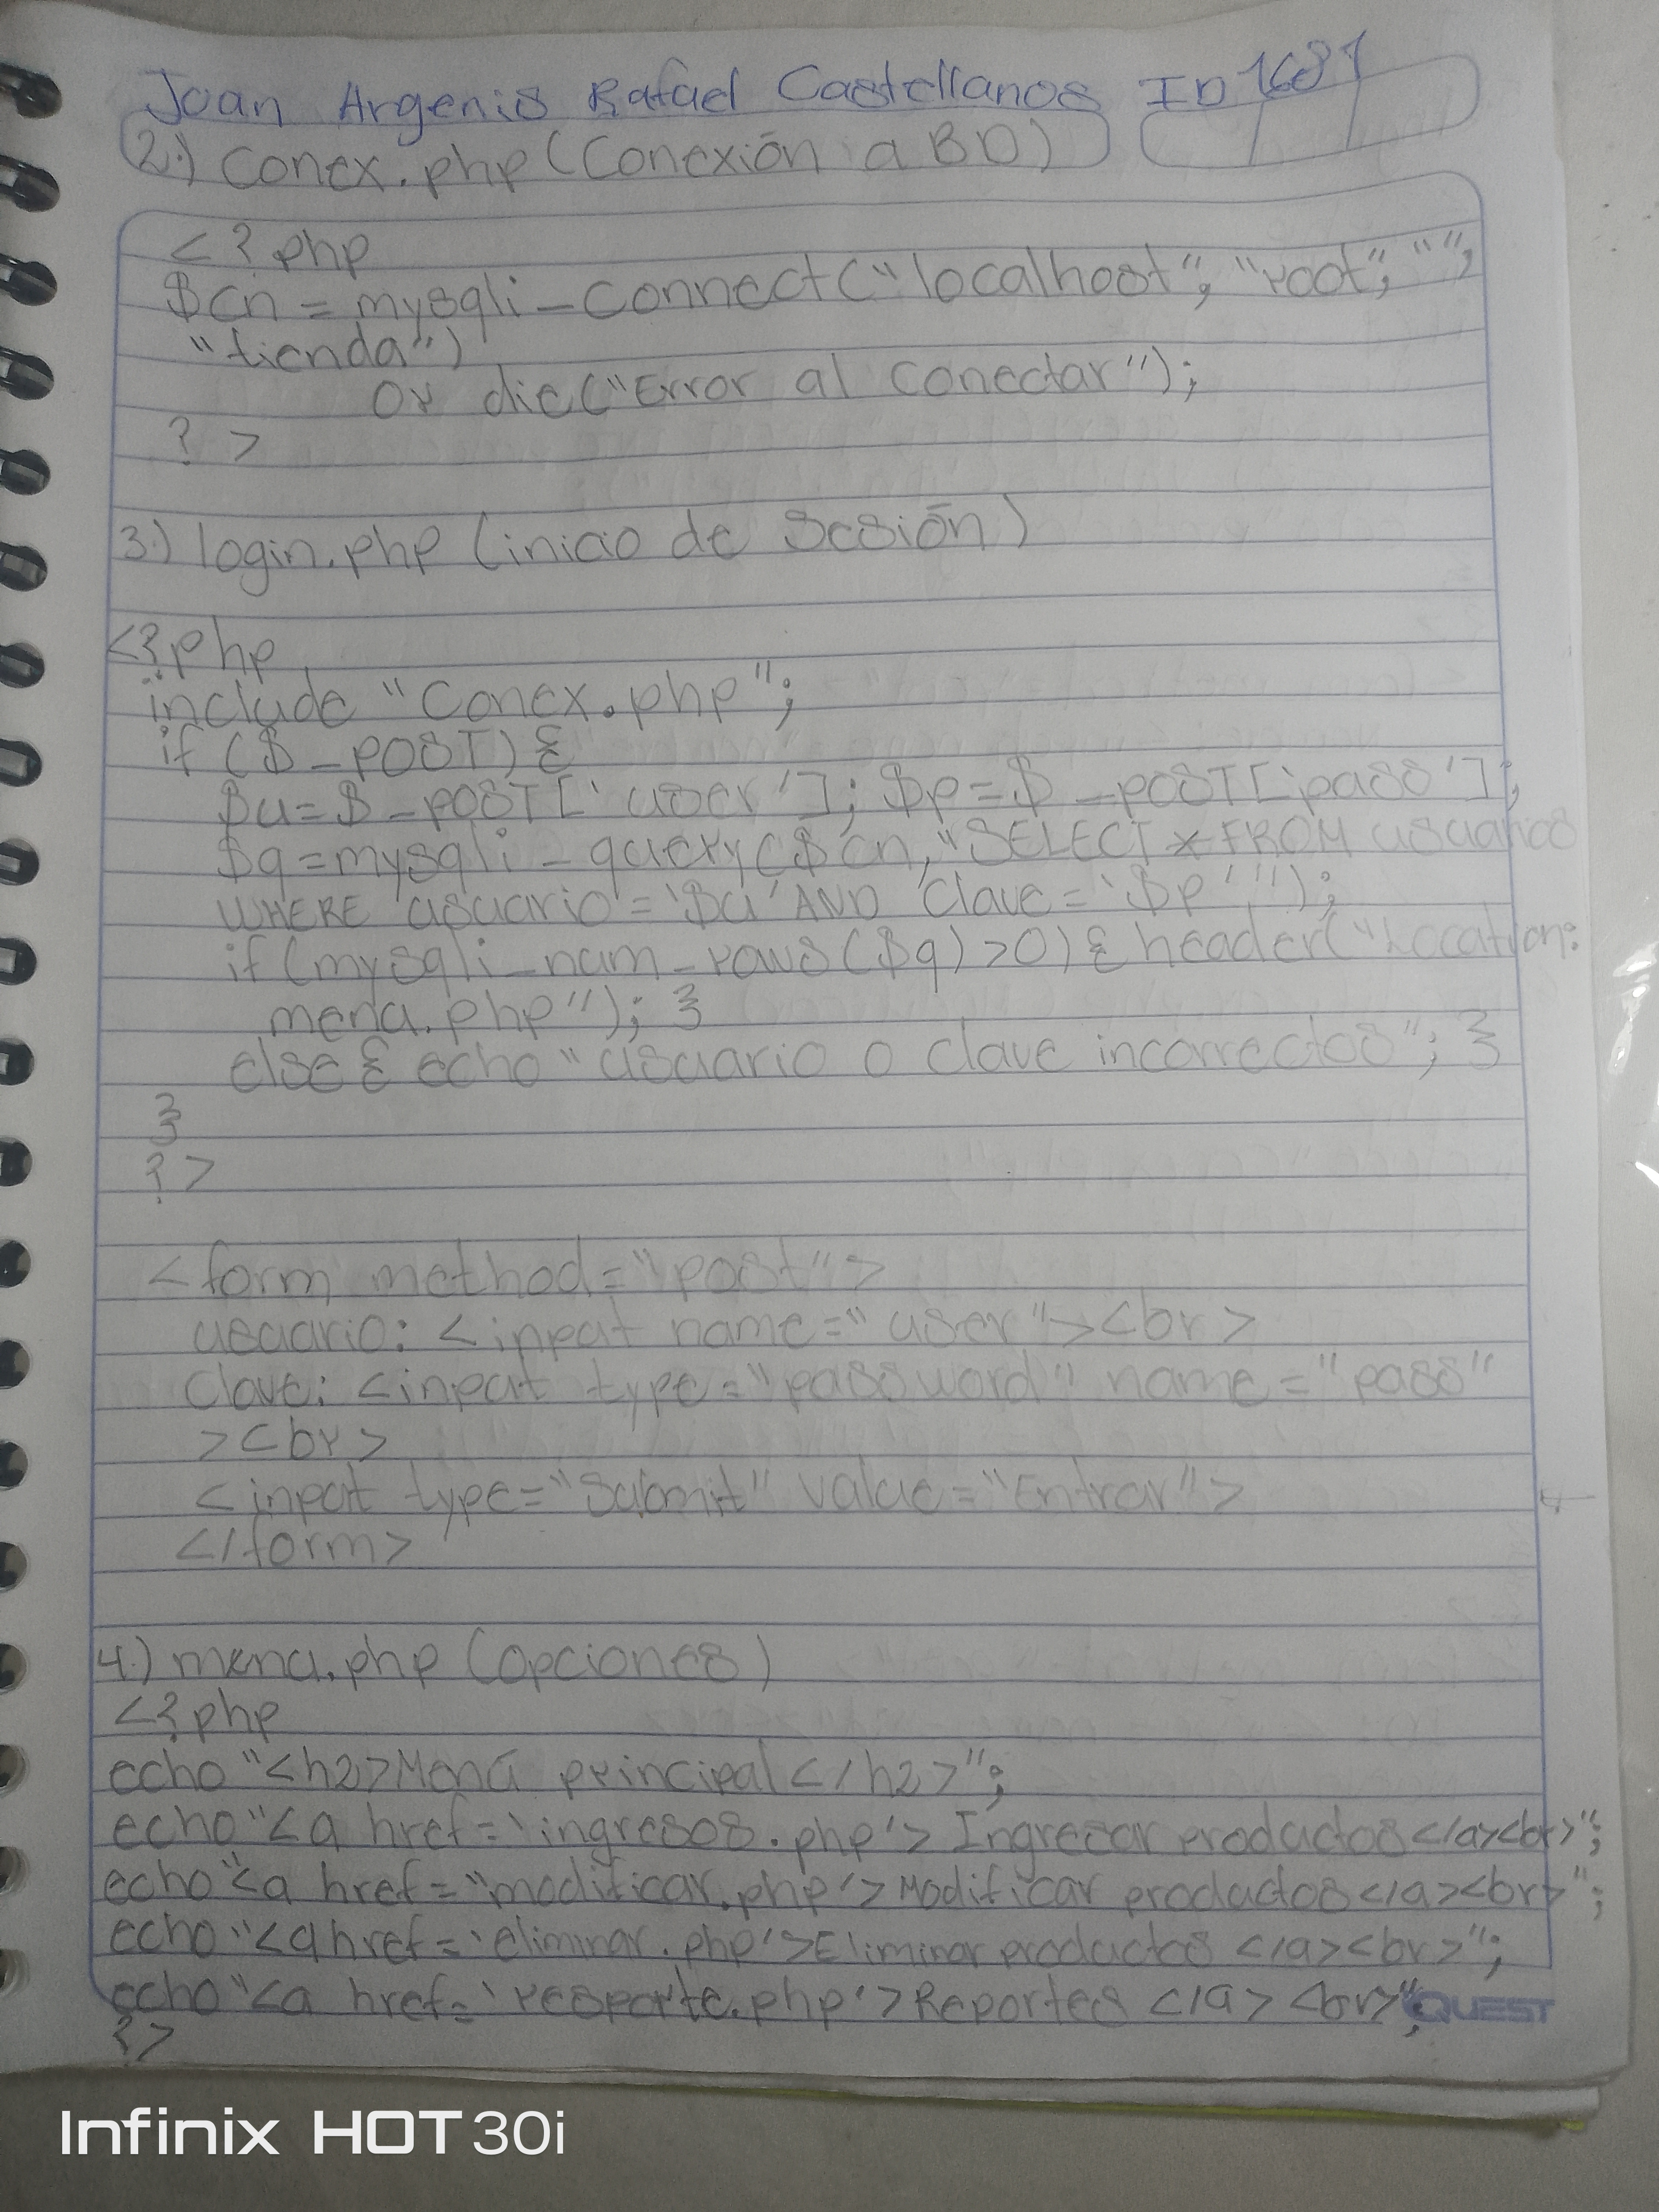 Joan Argenis Rafael Castellanos ID 1681
2.) Conex.php (Conexión a BD)
<?php
$cn = mysqli_connect("localhost", "root", "",
"tienda")
or die("Error al conectar");
?>
3.) login.php (inicio de sesión)
<?php
include "Conex.php";
if ($_POST) {
$u=$_POST['user']; $p=$_POST['pass'];
$q=mysqli_query($cn,"SELECT * FROM usuarios
WHERE usuario='$u' AND clave='$p'");
if(mysqli_num_rows($q)>0){ header("Location:
menu.php"); }
else { echo "usuario o clave incorrectos"; }
}
?>
<form method="post">
usuario: <input name="user"><br>
Clave: <input type="password" name="pass"
><br>
<input type="Submit" value="Entrar">
</form>
4.) menu.php (opciones)
<?php
echo "<h2>Menú principal</h2>";
echo "<a href='ingresos.php'>Ingresar productos</a><br>";
echo "<a href="modificar.php'>Modificar productos</a><br>";
echo "<a href='eliminar.php'>Eliminar productos</a><br>";
echo "<a href='resporte.php'>Reportes</a><br>";
?>
QUEST
Infinix HOT 30i